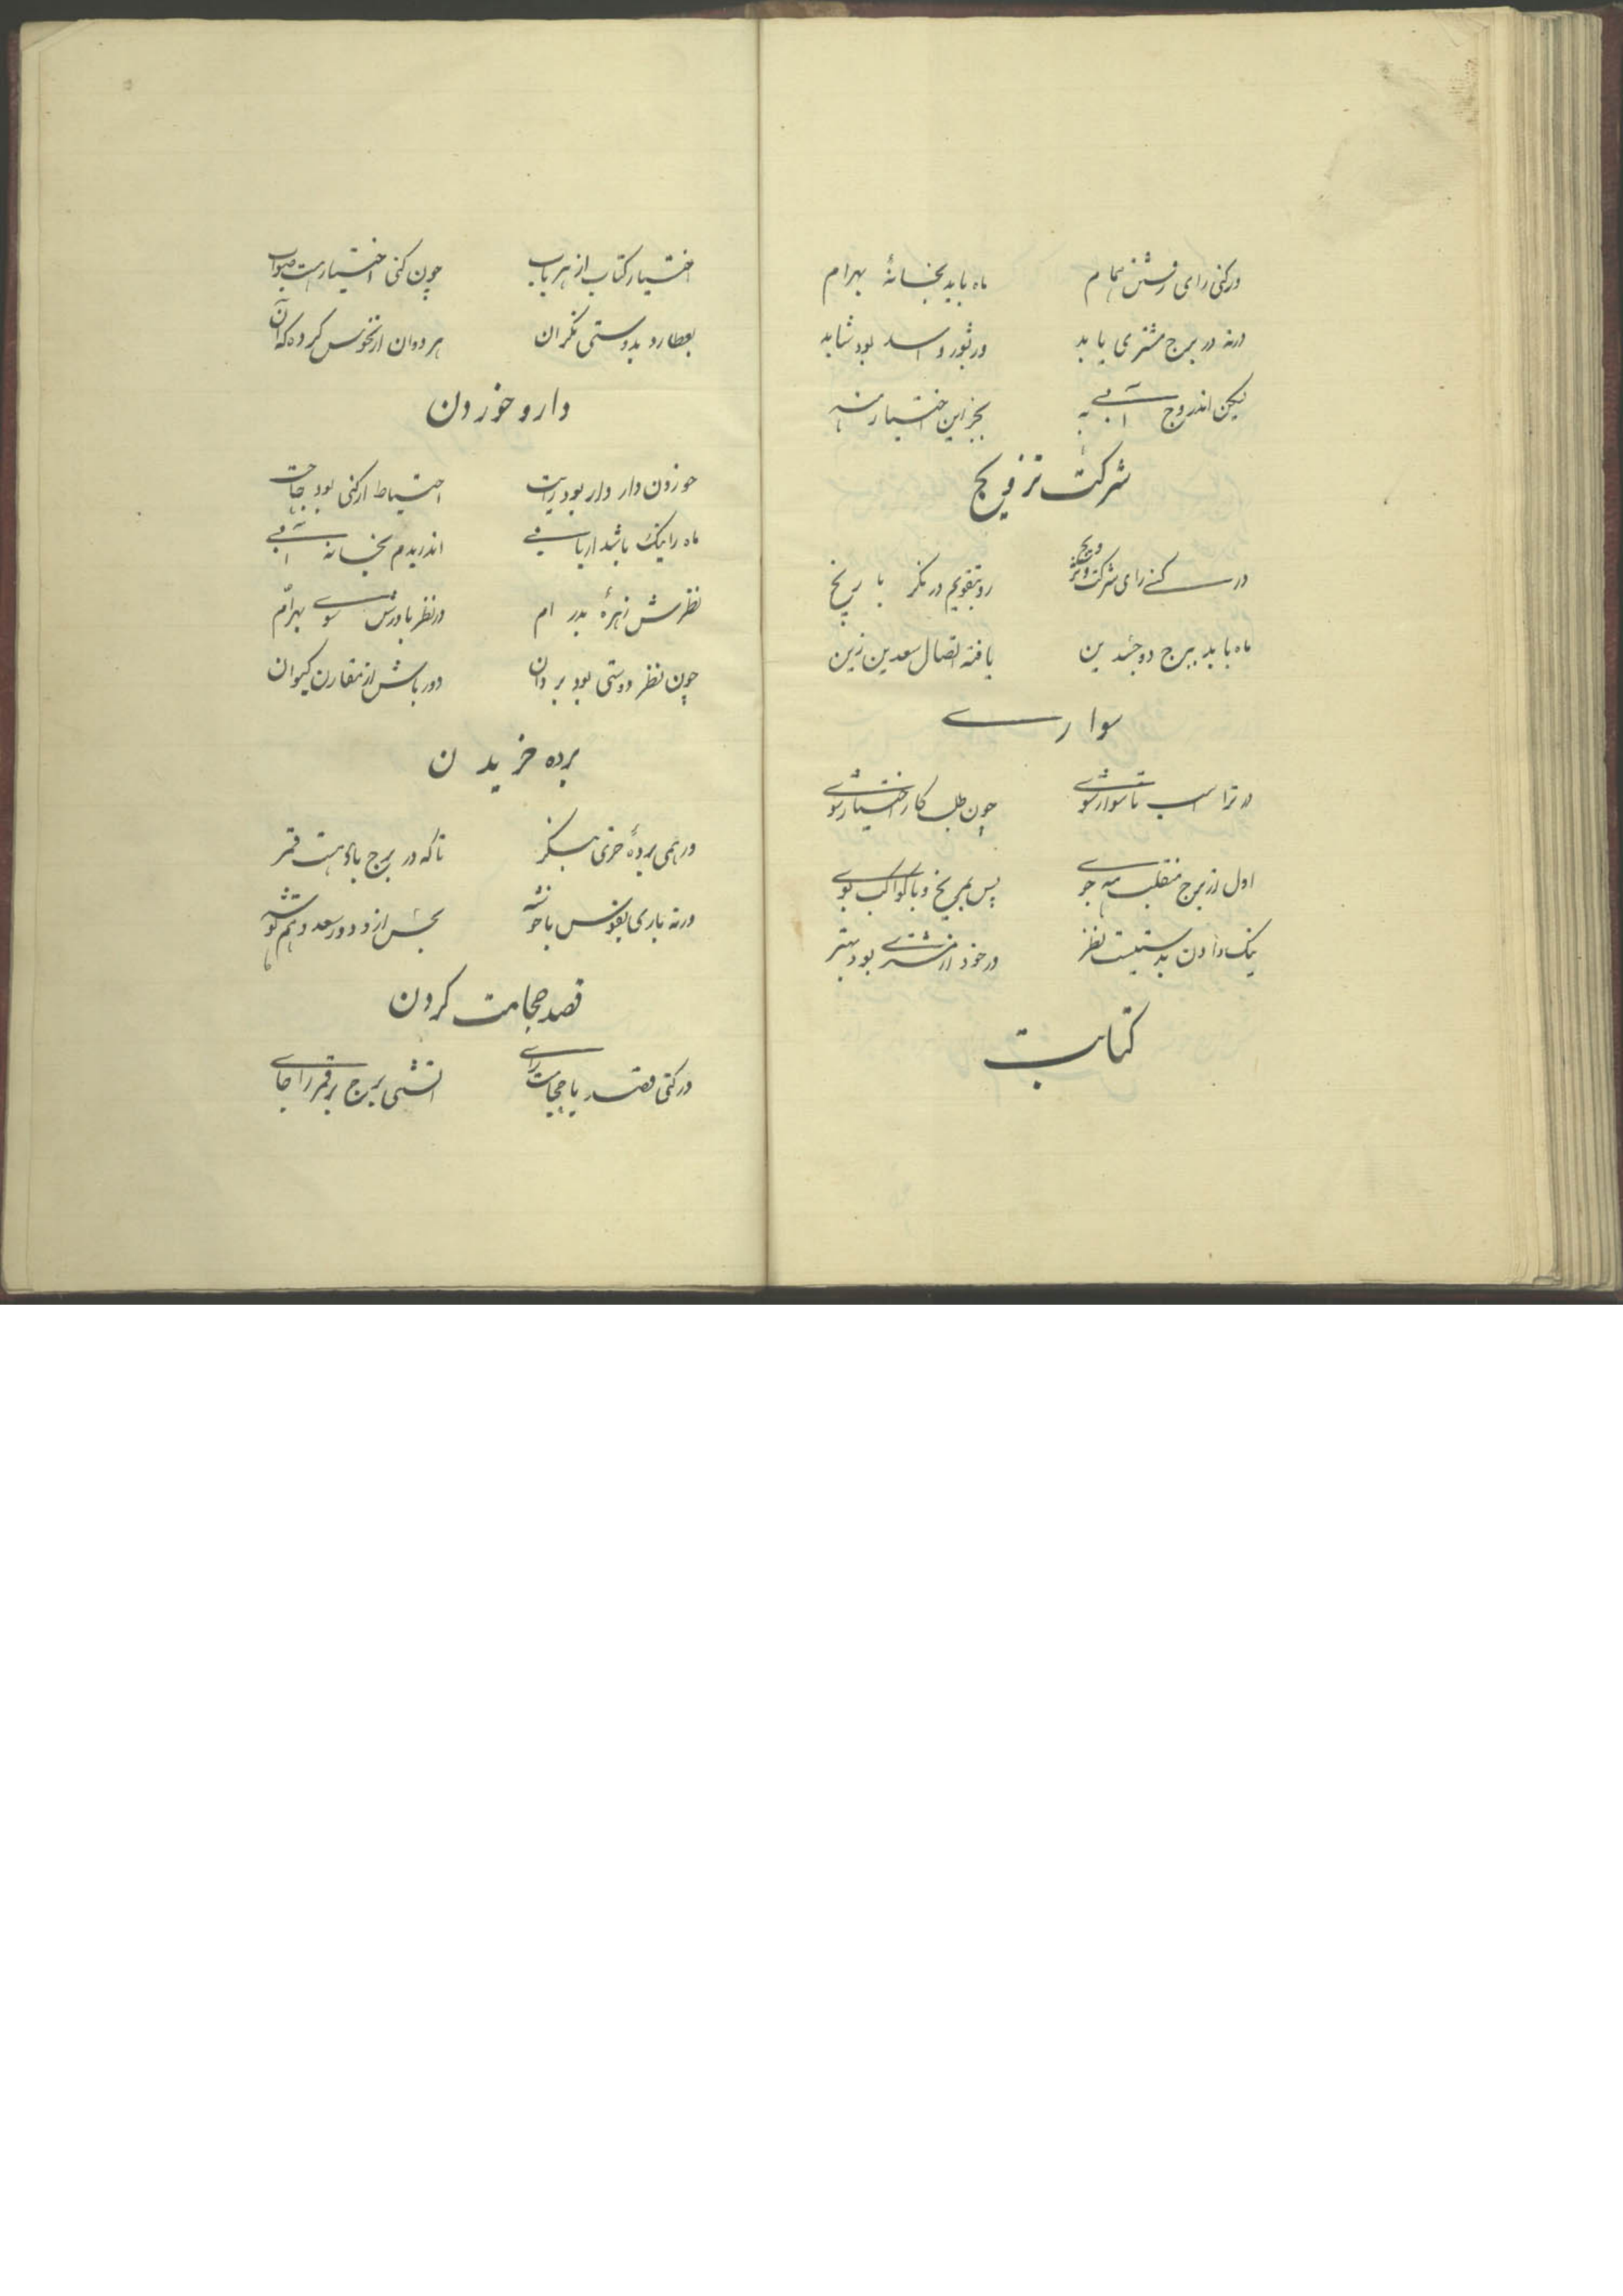 ورکنی رای رفتن حمام ماه باید بخانهٔ بهرام
ورنه در برج مشتری باید ور بثور و اسد بود شاید
لیکن اندر بروج آبی به بجز این اختیار منه
شرکت تزویج
ور کنی رای شرکت و تزویج رو بتقویم در نگر با زیج
ماه باید ببرج دو جسدین یافته اتصال سعدین زین
سواری
ور ترا اسب تا سوار شوی چون طلب کار اختیار شوی
اول از برج منقلب مه جوی پس بمریخ و با کواکب
نیک دادن بدستیت نظر ور خود از مشتری بود بهتر
کتابت
اختیار کتاب از هر باب چون کنی اختیار هست صواب
بعطارد بدوستی نگران هر دوان از نحوس کرده کران
دارو خوردن
خوردن دارو ار بود رایت احتیاط ار کنی بود جایت
ماه را نیک باشد ار یابی اندریدم بخانه آبی
نظرش زهره بدر ام ور نظر باورش سوی بهرام
چون نظر دوستی بود بر دان دور باش از مقارن کیوان
برده خریدن
ور همی بردهٔ خری بنگر تا که در برج باد هست قمر
ورنه باری بقوس یا خوشه نحس ازو دور سعد و هم گوشه
فصد حجامت کردن
ور کنی فصد یا حجامت رای آتشی برج بر قمر را جای